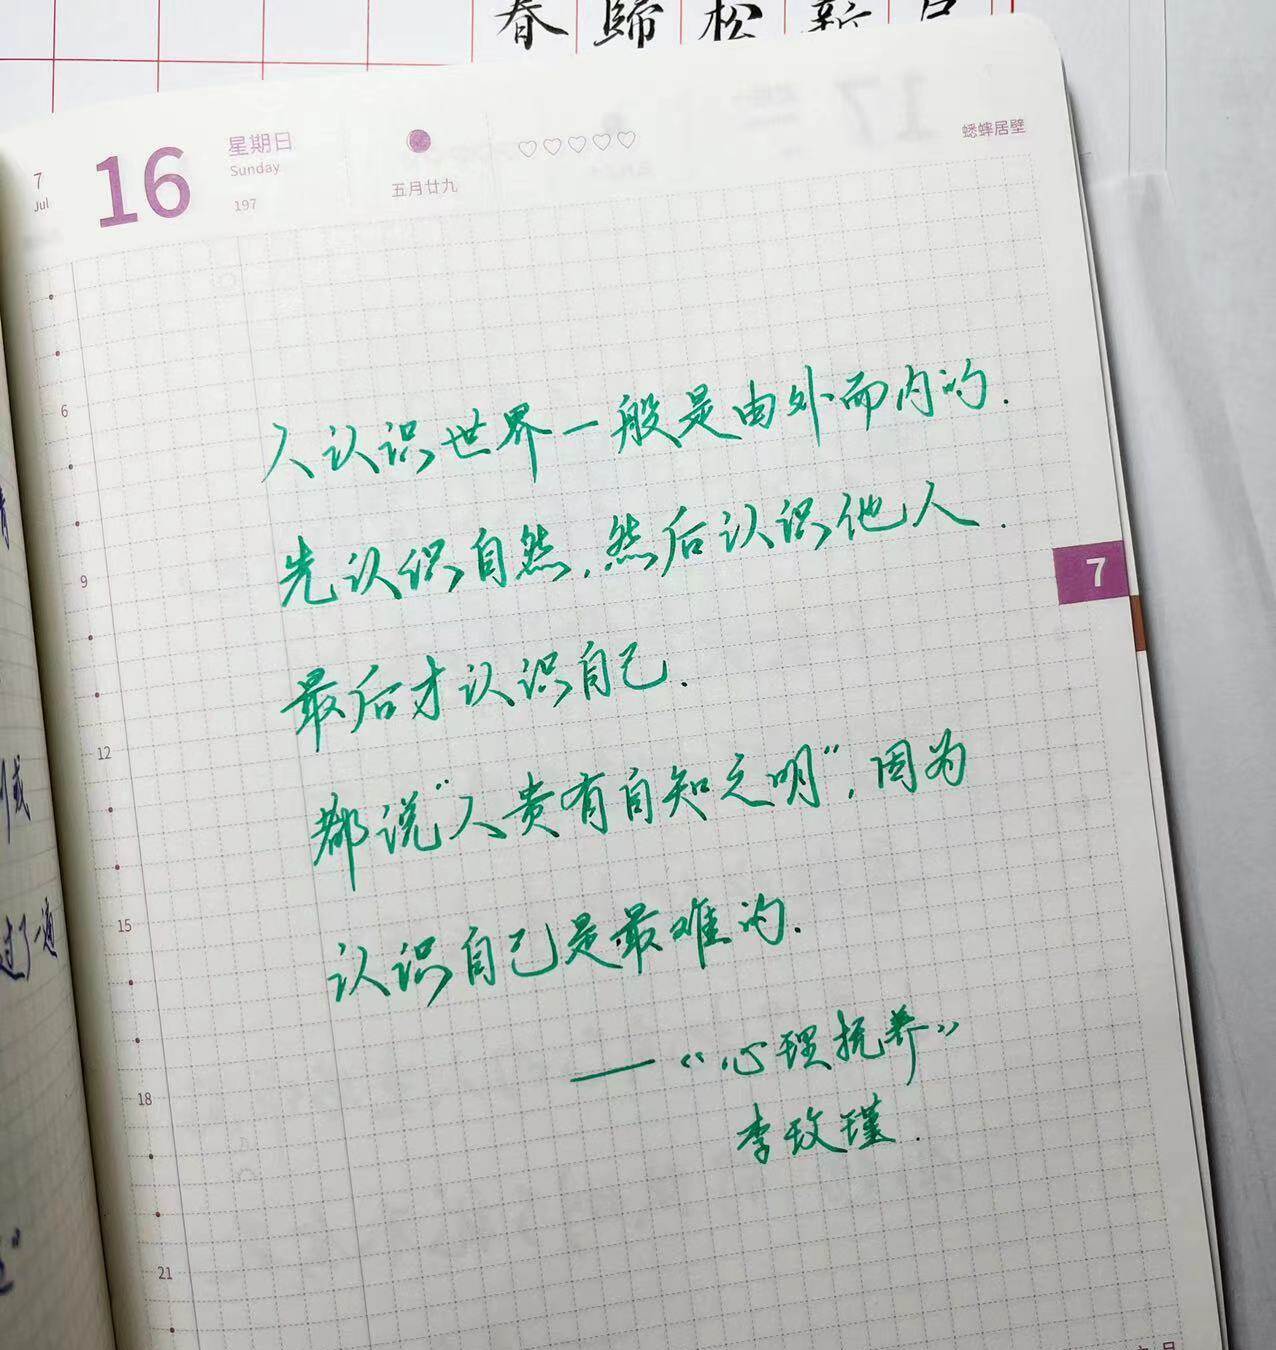 春歸松
7
Jul
16
星期日
Sunday
197
五月廿九
蟋蟀居壁
6
9
12
15
18
21
7
人认识世界一般是由外而内的.
先认识自然,然后认识他人.
最后才认识自己.
都说“人贵有自知之明”,因为
认识自己是最难的.
——《心理抚养》
李玫瑾.
过了一遍